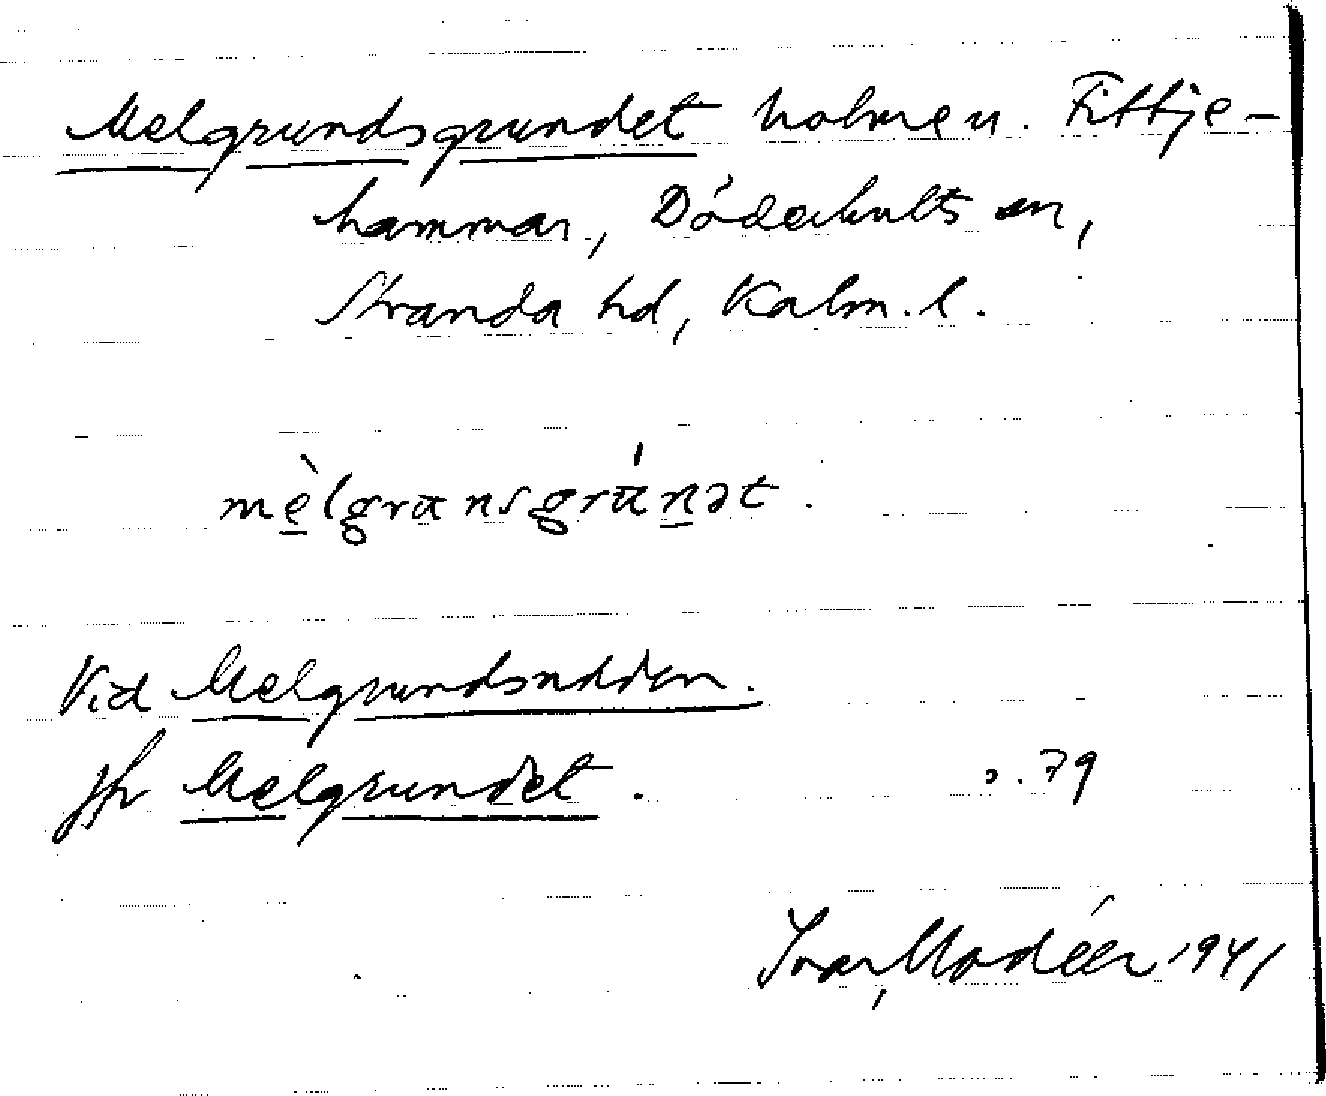 Melgrundsgrundet holme u. Fittje-
hammar, Döderhults sn,
Stranda hd, Kalm. l.
mèlgrunsgrúnət.
Vid Melgrundsudden.
jfr Melgrundet. s. 79
Ivar Modéer 1941